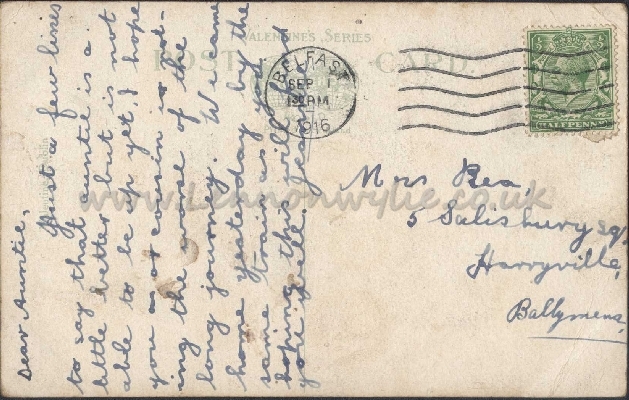 VALENTINES SERIES
POST CARD
BELFAST
SEP 1
1 30 PM
1916
HALFPENNY
Mrs Rea,
5 Salisbury Sq.
Harryville,
Ballymena,
www.lennonwylie.co.uk
Dear Auntie,
Just a few lines
to say that auntie is a
little better but is not
able to be up yet, I hope
you as or cousin is
ing the worse of the
long journey. We came
home yesterday by the
same train as you did
hoping this will find
you well.